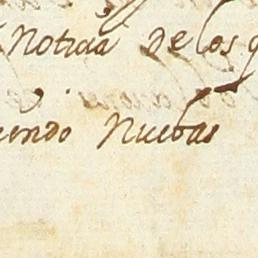 Noticia De los q
iendo Nuebas